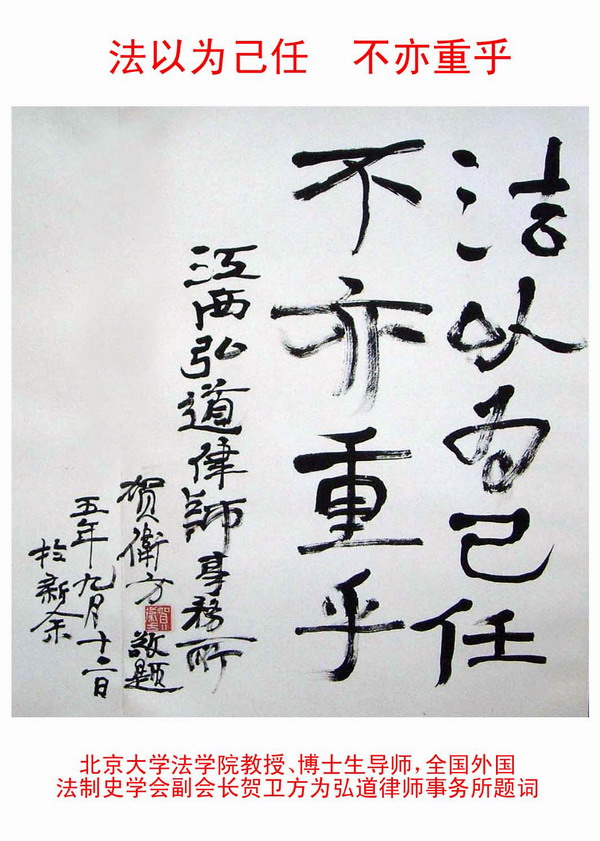 法以为己任 不亦重乎
法以为己任
不亦重乎
江西弘道律師事務所
贺衛方敬题
五年九月十二日
於新余
北京大学法学院教授、博士生导师，全国外国
法制史学会副会长贺卫方为弘道律师事务所题词